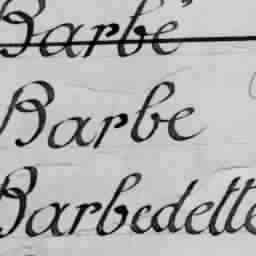 Barbé
Barbe
Barbedette